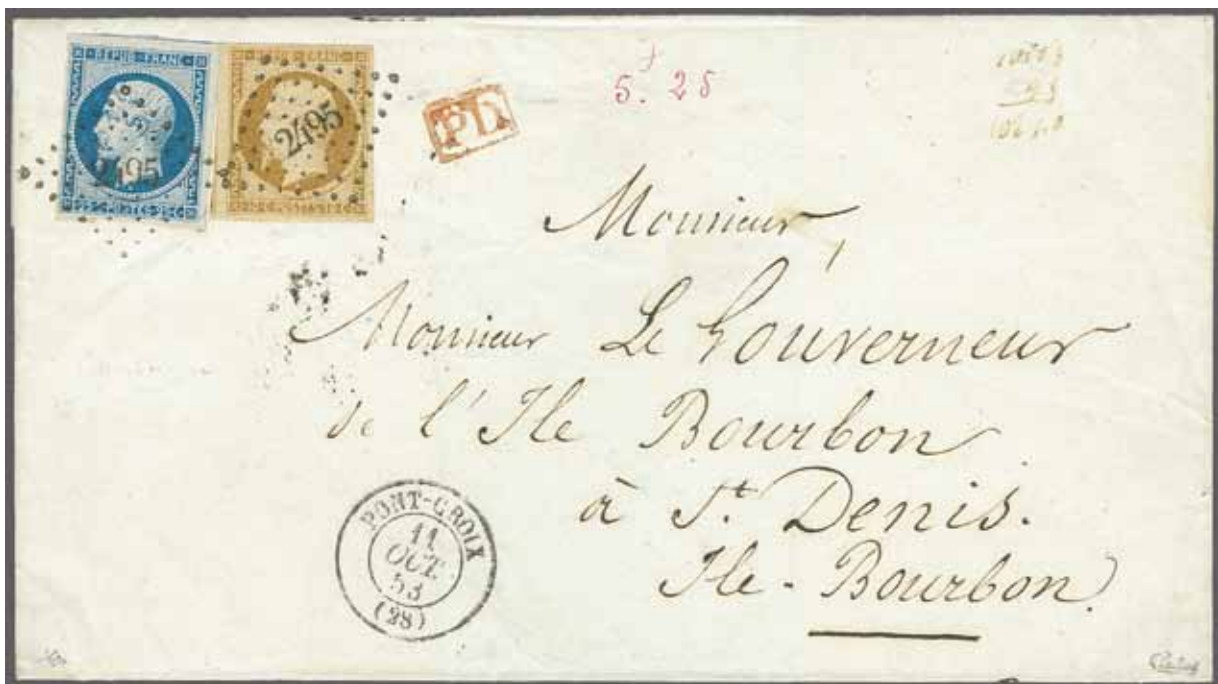 REPUB·FRANC·
REPUB·FRANC·
2495
2495
25c POSTES 25c
PD
5.f 25
Monsieur,
Monsieur Le Gouverneur
de l'Ile Bourbon
à St. Denis.
Ile-Bourbon.
PONT-CROIX
11
OCT.
53
(28)